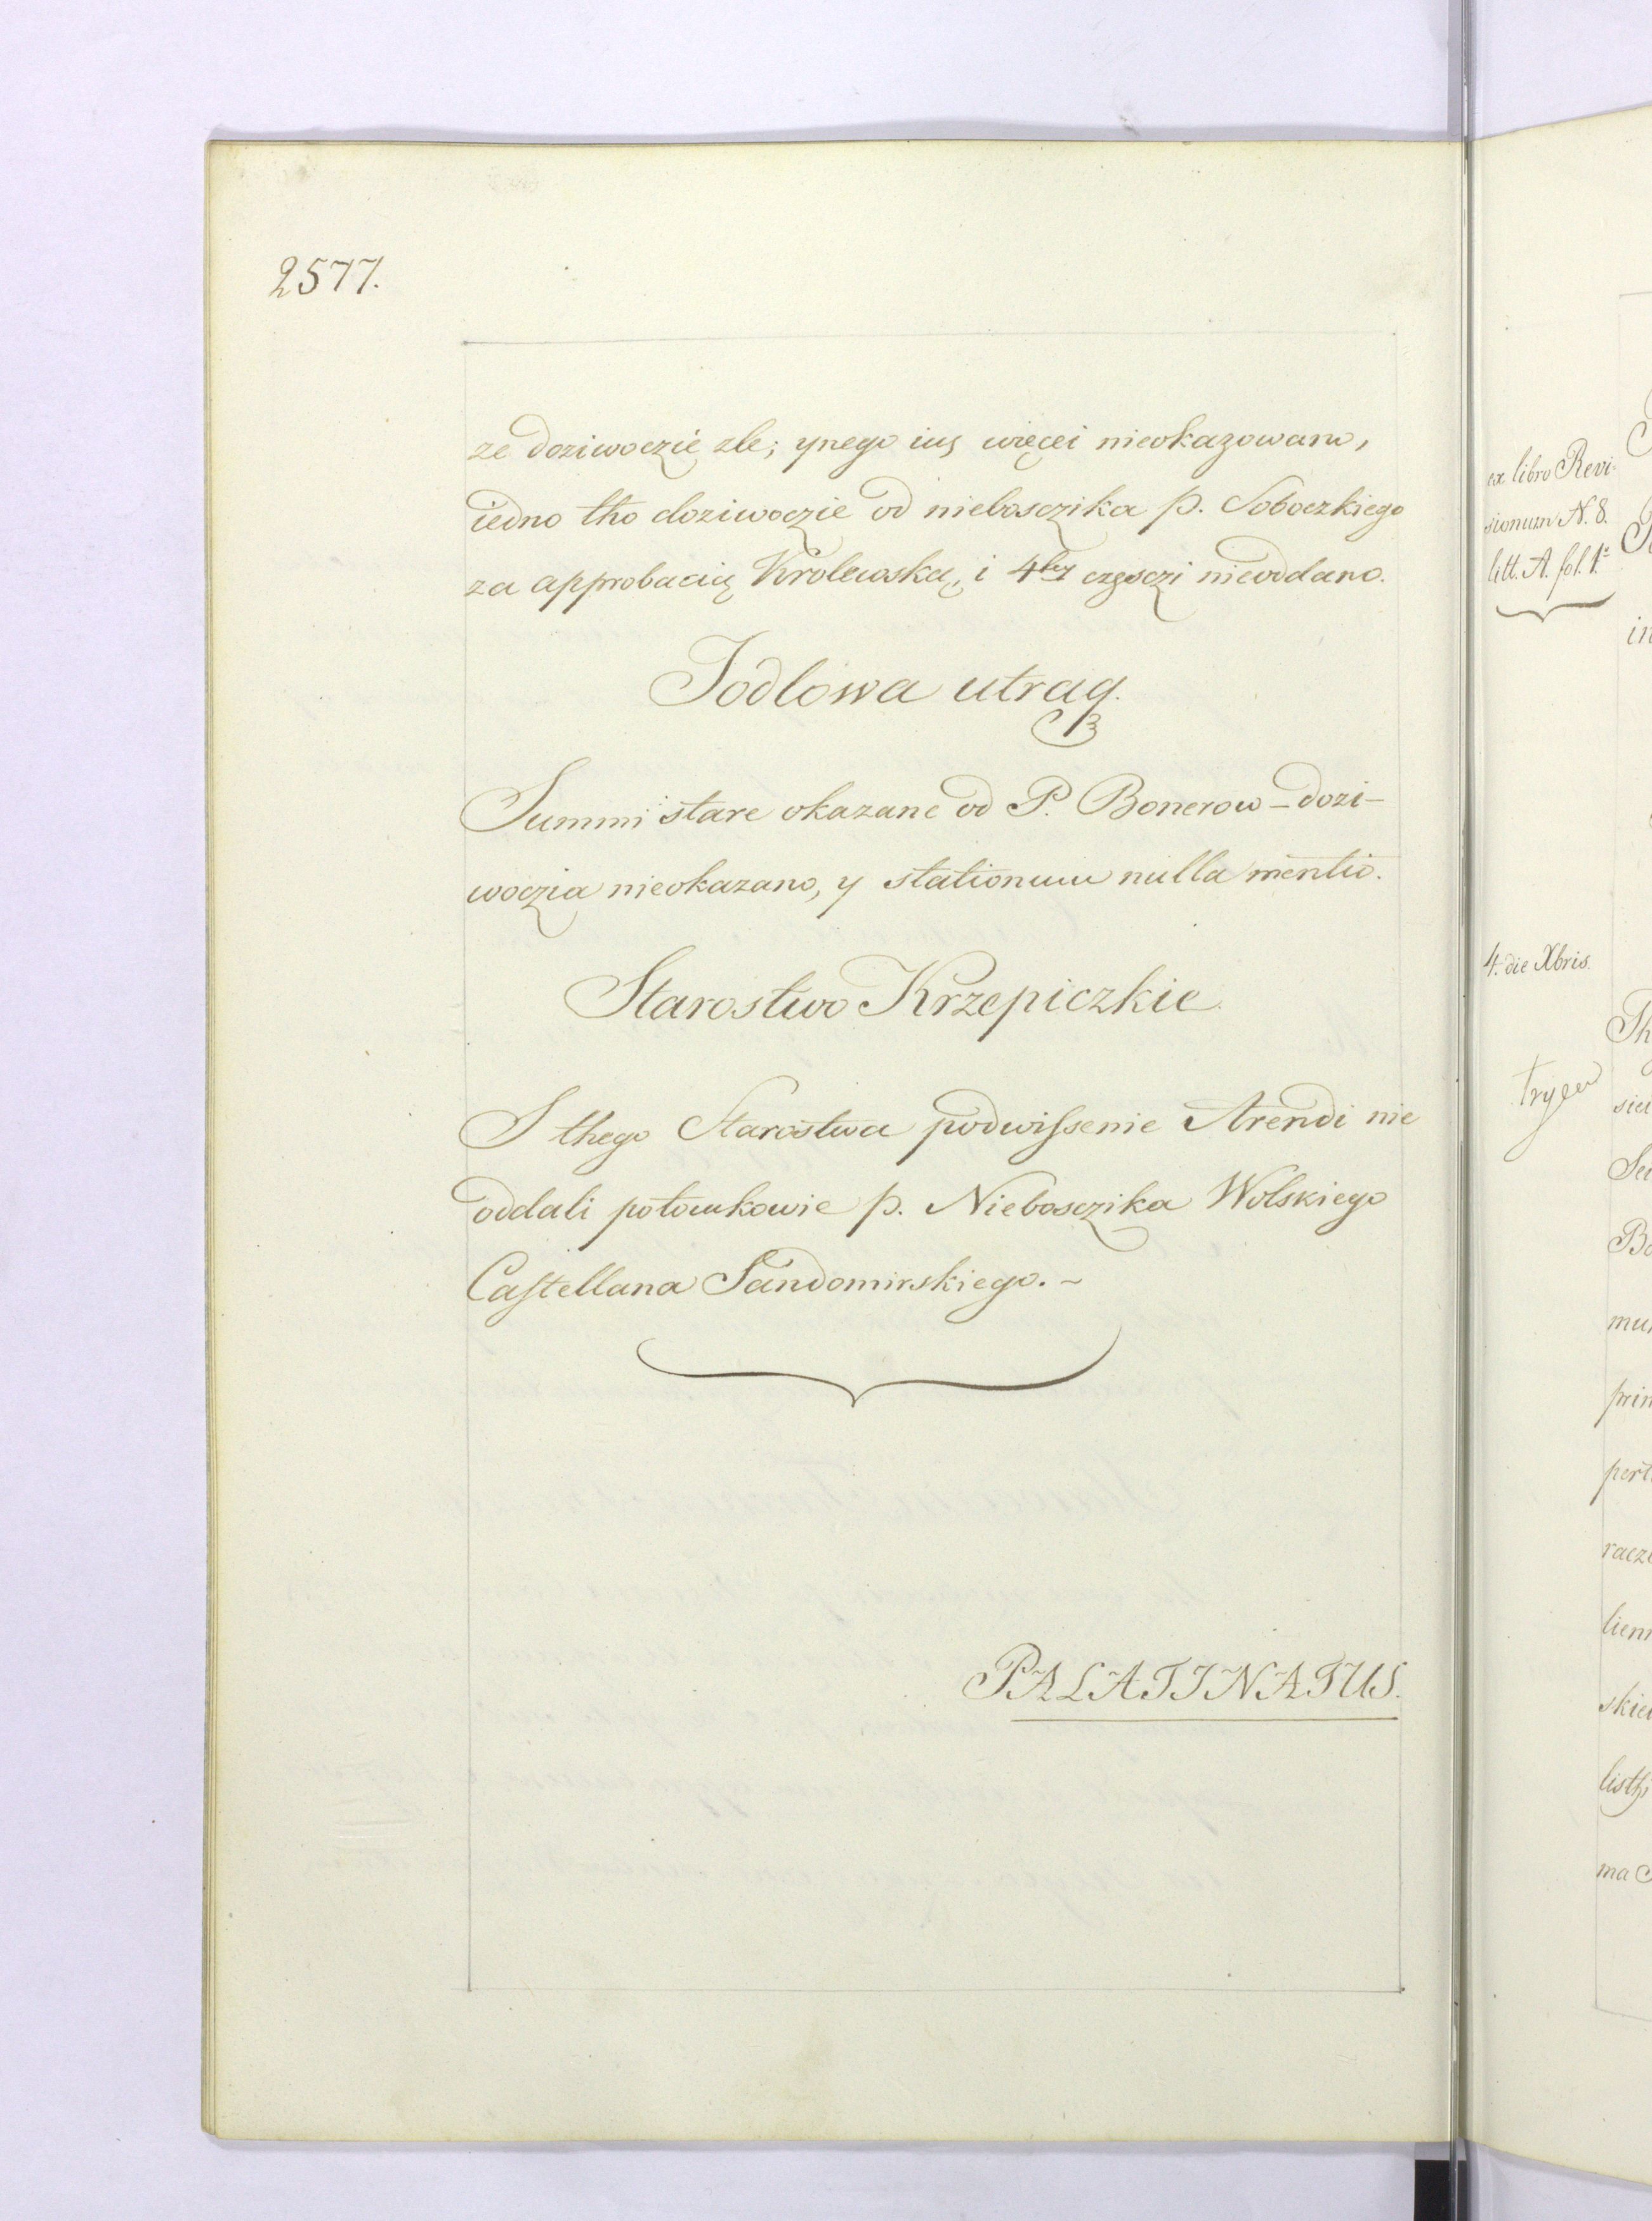 2577.
ze doziwoczie zle; ynego ius więcei nieokazowano,
iedno tho doziwoczie od nieboszczika p. Soboczkiego
za approbacią Krolewską, i 4tey częsczi nieoddano.
Jodlowa utraq.
Summi stare okazane od P. Bonerow – dozi–
woczia nieokazano, y stationum nulla mentio.
Starostwo Krzepiczkie
S thego Starostwa podwissenie Arendi nie
oddali potomkowie p. Nieboszczika Wolskiego
Castellana Sandomirskiego. ~
PALATINATUS.
ex libro Revi-
sionum N. 8.
litt. A. fol. 1.
in
4. die Xbris.
Th
sie
Se
Bo
mu
prim
pert
racz
lien
skie
listh
ma